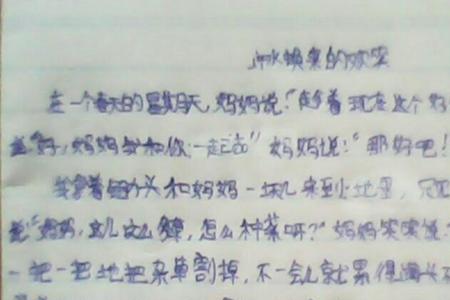 汗水换来的欢笑
在一个春天的星期天,妈妈说:"趁着现在这个好
"好,妈妈我和你一起去"妈妈说:"那好吧!
我拿着锄头和妈妈一块儿来到小地里,只见
"妈妈,这儿这么,怎么种菜呀?"妈妈笑笑说:
一把一把地把杂草割掉,不一会儿就累得满头